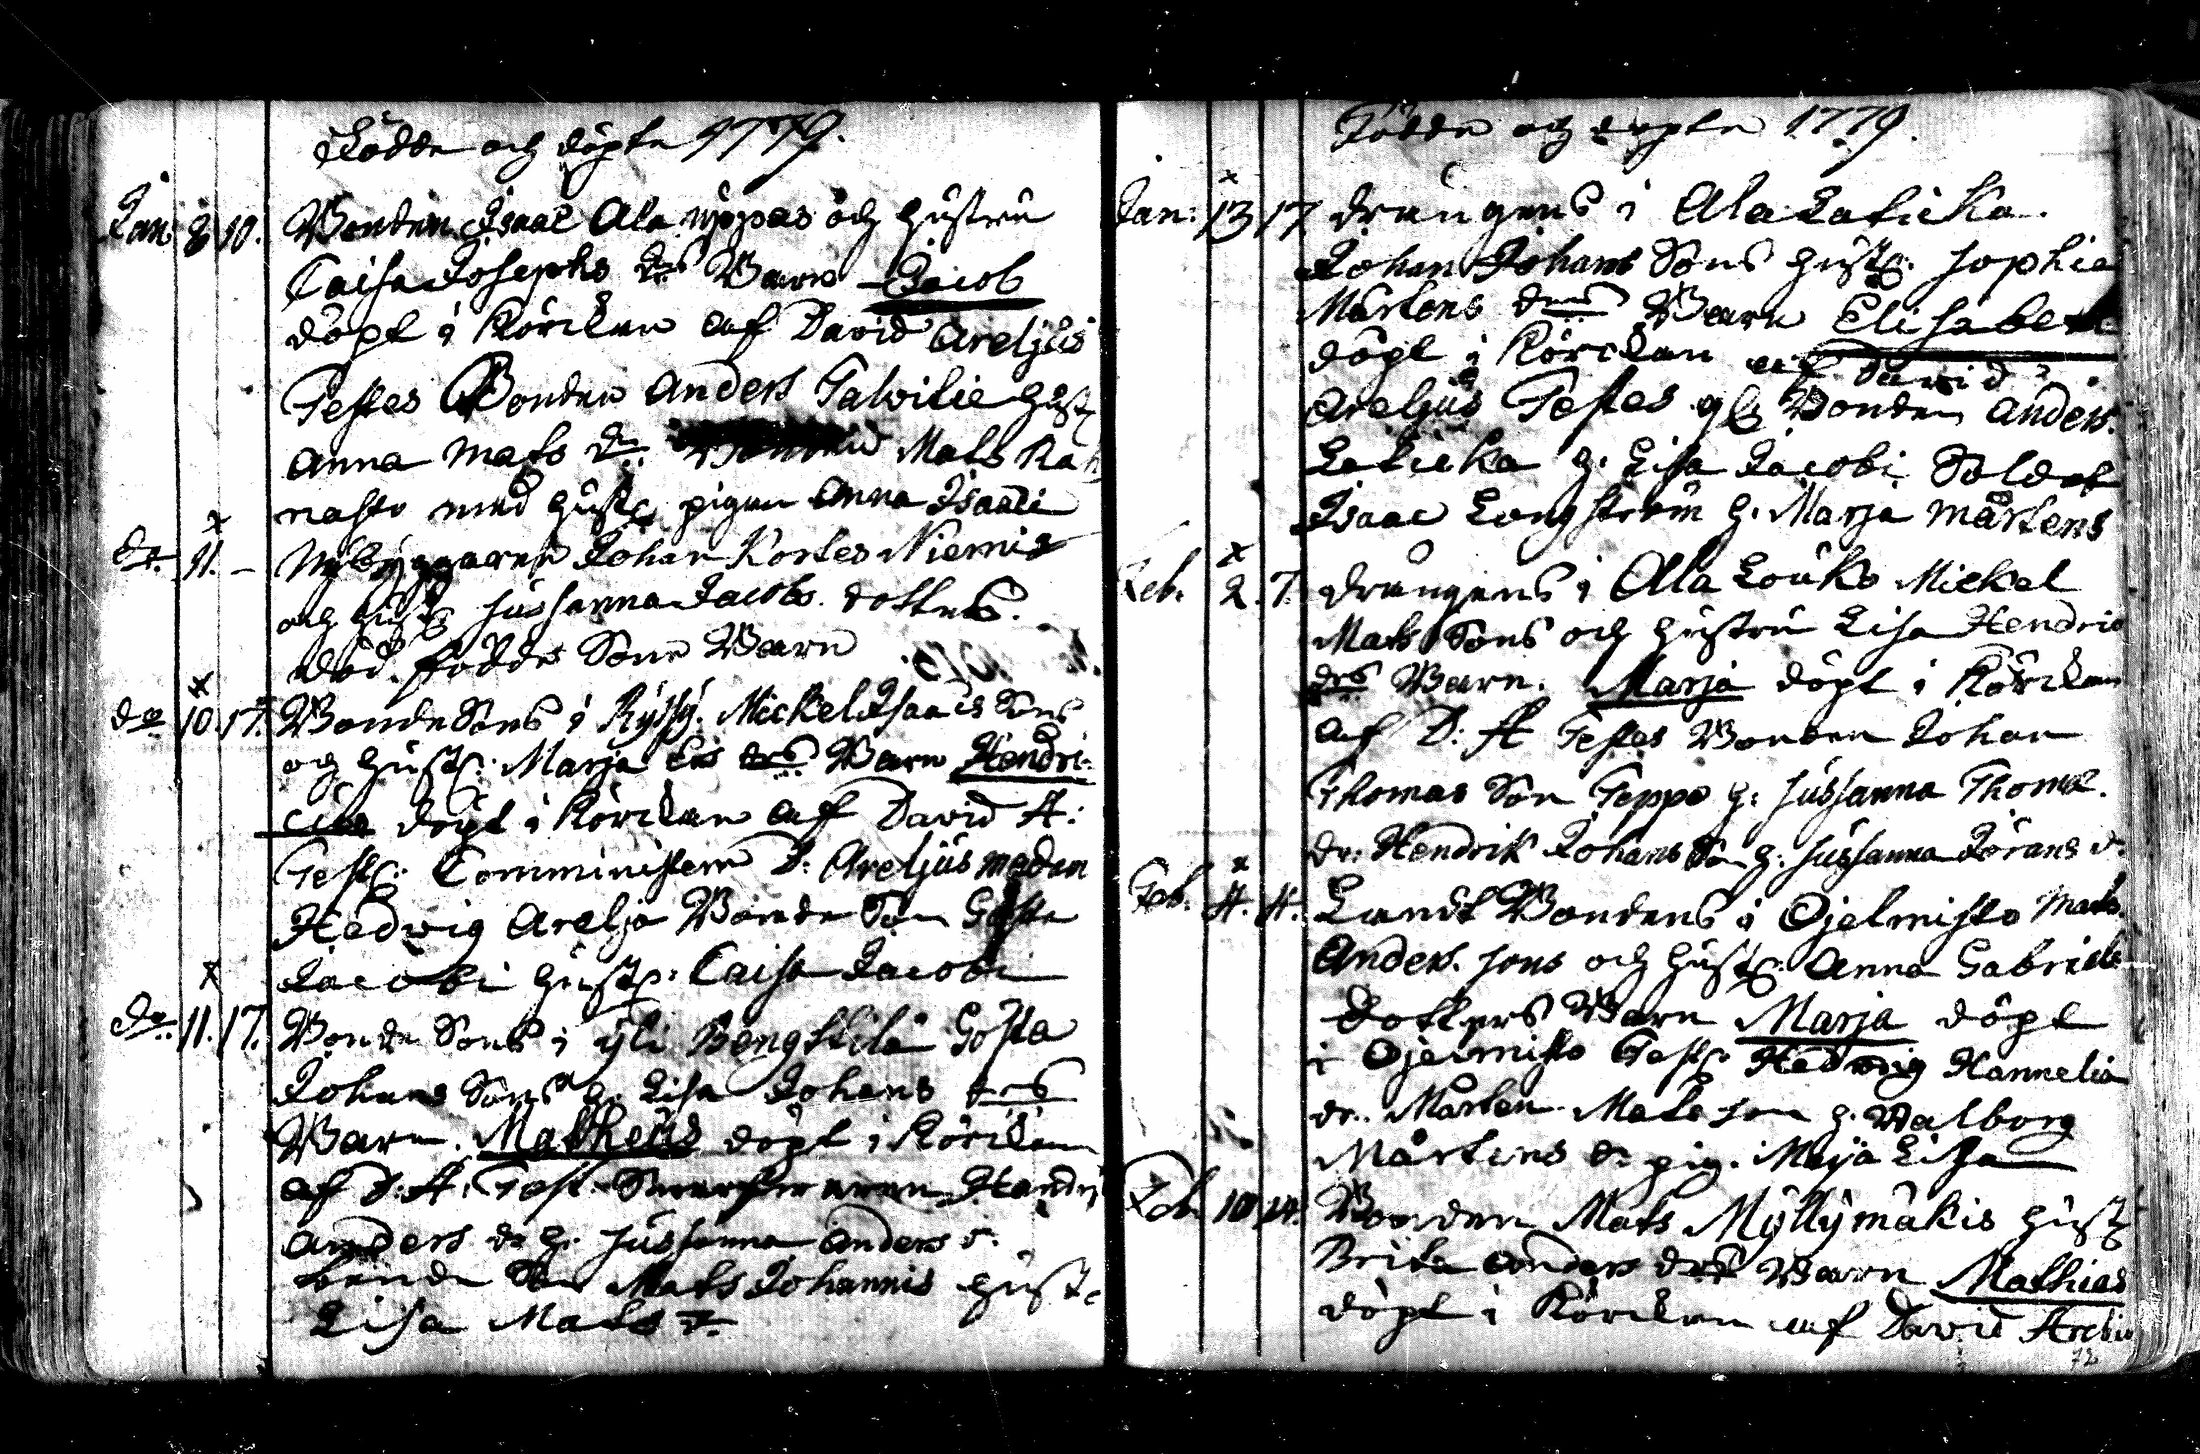 Födde och döpte 1779.
Jan: 8 10. Bonden Isaac Ala nyppas och hustru
Caisa Josephs drs Barn Jacob
döpt i Körckan af David Areljus
Testes Bonden Anders Talvitie hust
Anna Mats dr. Mats Ka
nasto med hust. pigan Anna Isaaci
x
do 11. – Nybyggaren Johan Kortes Niemis
och hust. Sussanna Jacobs dotters
död födde Sone Barn
x
do 10. 17. Bonde Sons i Ryssy. Mickel Isaacs Sons
och hust: Marja Ers drs Barn Hendri
cus döpt i Körckan af David A:
Test: Comministern D: Areljus madam
Hedwig Arelja Bonde Son Gösta
Jacobi hust: Caisa Jacobi
x
do 11. 17. Bonde Sons i yli Bengttila Gösta
Johans Sons h. Lisa Johans drs
Barn. Matheus döpt i Körckan
af D: A: Test. Hendri
Anders dr h. Sussanna Anders d.
bonde Son Mats Johannis hust.
Lisa Mats d.
Födde och döpte 1779.
x
Jan: 13 17 drängens i Ala Laticka.
Johan Johans Sons hust. Sophia
Mårtens drs Barn Elisabeta
döpt i Körckan af David
Areljus Testes Bonden Anders.
Laticka h. Lisa Jacobi Soldat
Isaac Longström h. Marja Mårtens
x
Feb. 2. 7. drängens i Ala Louko Mickel
Mats Sons och hustru Lisa Hendric
drs Barn. Marja döpt i Körckan
af D: A Testes Bonden Johan
Thomas Son Teppo h: Sussanna Thomæ.
dr: Hendrik Johans Son h: Sussanna Jörans d.
x
Feb. 4. 4. Landt Bondens i Ojelmisto Mats.
Anders. sons och hust: Anna Gabriels
dotters Barn Marja döpt
i Ojelmisto Test: Hedwig Hannelia
dr. Mårten Mats son h. Walborg
Mårtens dr pig. Maja Lisa
Feb. 10 14. Bonden Mats Myllymäkis hust
Brita Anders drs Barn Mathias
döpt i Körckan af David Areliu
72